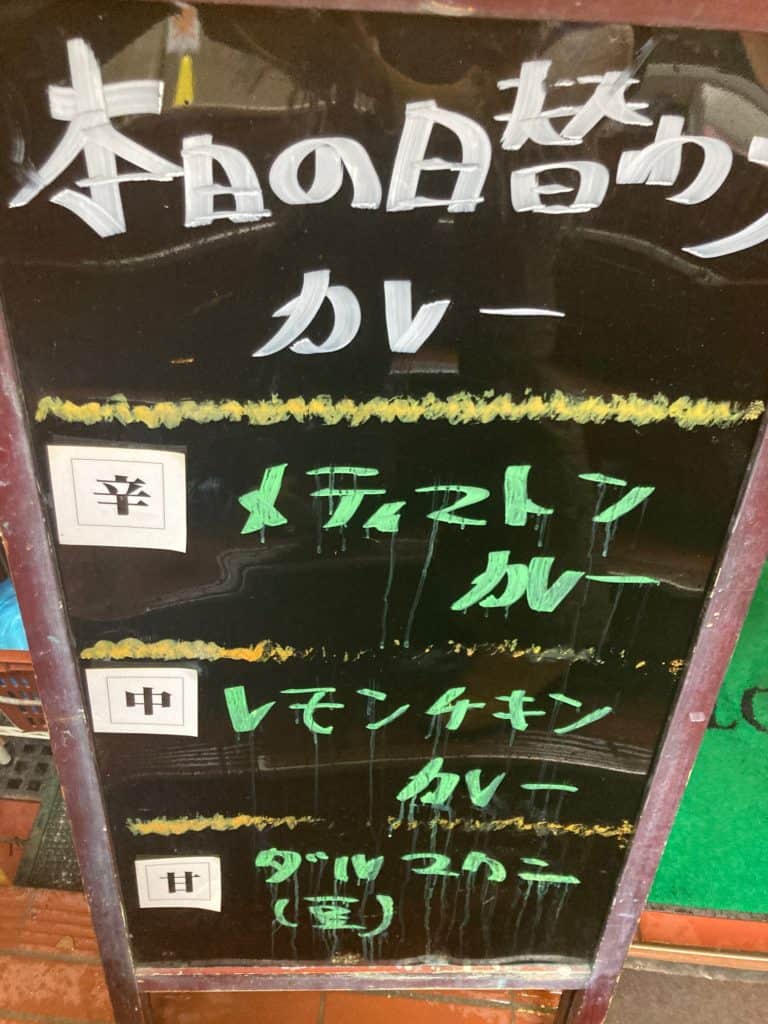 本日の日替わり
カレー
辛 メティマトン
カレー
中 レモンチキン
カレー
甘 ダルマクニ
(豆)